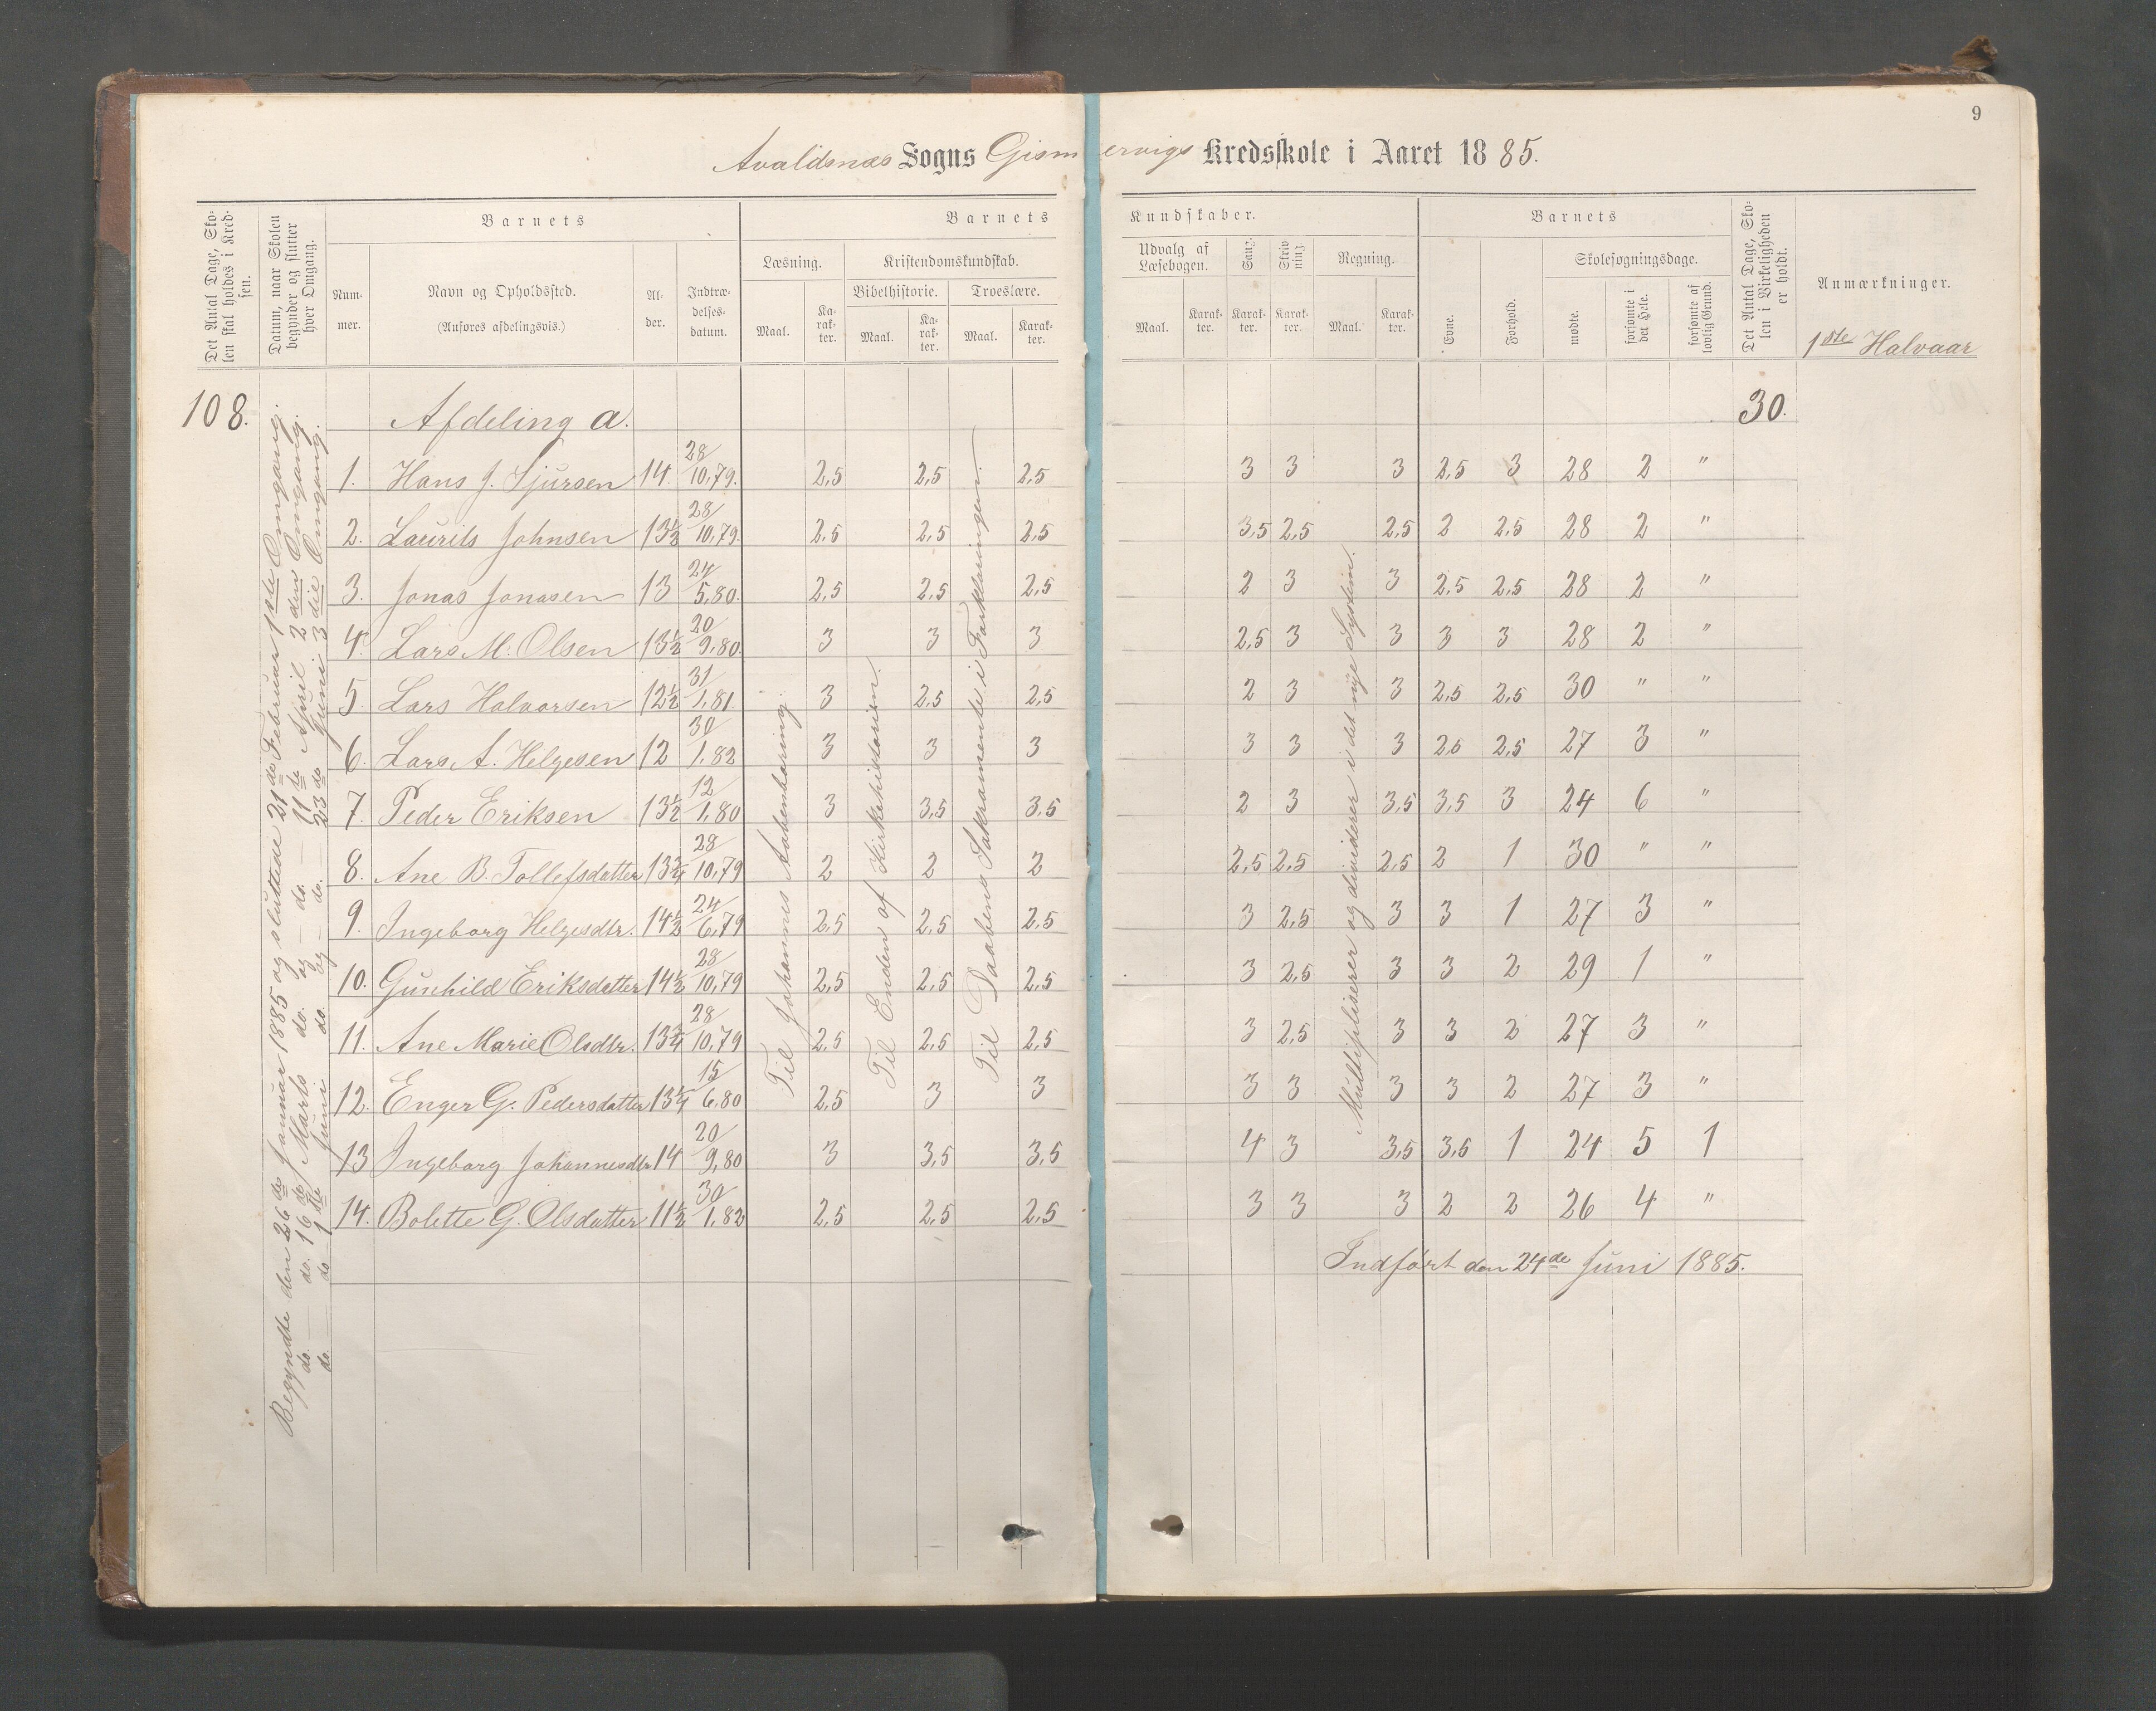 9
Avaldsnæs Sogns Gismervigs Kredsskole i Aaret 1885.
Det Antal Dage, Skolen skal holdes i Kredsen.
Datum, naar Skolen begynder og slutter hver Omgang.
Barnets
Nummer.
Navn og Opholdssted.
(Anføres afdelingsvis.)
Alder.
Indtrædelsesdatum.
Barnets Kundskaber.
Læsning.
Maal.
Karakter.
Kristendomskundskab.
Bibelhistorie.
Maal.
Karakter.
Troeslære.
Maal.
Karakter.
Udvalg af Læsebogen.
Maal.
Karakter.
Sang.
Karakter.
Skrivning.
Karakter.
Regning.
Maal.
Karakter.
Barnets
Evne.
Forhold.
Skolesøgningsdage.
mødte.
forsømte i det Hele.
forsømte af lovlig Grund.
Det Antal Dage, Skolen i Virkeligheden er holdt.
Anmærkninger.
1ste Halvaar
108.
Afdeling a.
30.
Begyndte den 26de Januar 1885 og sluttede 21de Februar 1ste Omgang.
do. — do. 16de Marts do. og — do. — 11te April 2den Omgang.
do. — do. 1ste Juni do. og — do. — 23de Juni 3die Omgang.
Til Johannes Aabenbaring.
Til Enden af Kirkehistorien.
Til Daabens Sakramente i Forklaringen.
Multipliserer og dividerer i det nye System.
1. Hans J. Sjursen 14. 28/10,79. 2,5 2,5 2,5 3 3 3 2,5 3 28 2 "
2. Laurits Johnsen 13½ 28/10,79. 2,5 2,5 2,5 3,5 2,5 2,5 2 2,5 28 2 "
3. Jonas Jonasen 13 24/5,80. 2,5 2,5 2,5 2 3 3 2,5 2,5 28 2 "
4. Lars M. Olsen 13½ 20/9,80. 3 3 3 2,5 3 3 3 3 28 2 "
5. Lars Halvorsen 12½ 31/1,81. 3 2,5 2,5 2 3 3 2,5 2,5 30 " "
6. Lars A. Helgesen 12 30/1,82 3 3 3 3 3 3 2,5 2,5 27 3 "
7. Peder Eriksen 13½ 12/1,80 3 3,5 3,5 2 3 3,5 3,5 3 24 6 "
8. Ane B. Tollefsdatter 13¾ 28/10,79 2 2 2 2,5 2,5 2,5 2 1 30 " "
9. Ingeborg Helgesdtr. 14½ 24/6,79 2,5 2,5 2,5 3 2,5 3 3 1 27 3 "
10. Gunhild Eriksdatter 14½ 28/10,79 2,5 2,5 2,5 3 2,5 3 3 2 29 1 "
11. Ane Marie Olsdtr. 13¾ 28/10,79 2,5 2,5 2,5 3 2,5 3 3 2 27 3 "
12. Enger G. Pedersdatter 13¼ 15/6,80 2,5 3 3 3 3 3 3 2 27 3 "
13 Ingeborg Johannesdtr 14 20/9,80 3 3,5 3,5 4 3 3,5 3,5 1 24 5 1
14. Bolette G. Olsdatter 11½ 30/1,82 2,5 2,5 2,5 3 3 3 2 2 26 4 "
Indført den 24de Juni 1885.